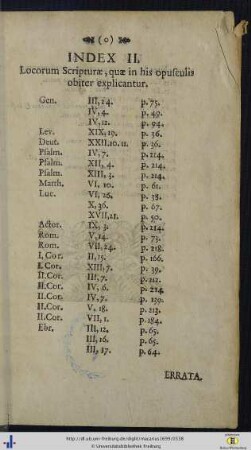 (o)
INDEX II.
Locorum Scripturæ, quæ in his opusculis
obiter explicantur.
Gen. III, 14. p. 75.
IV, 4. p. 49.
IV, 12. p. 94.
Lev. XIX, 19. p. 36.
Deut. XXII, 10. 11. p. 36.
Psalm. IV, 7. p. 214.
Psalm. XII, 4. p. 214.
Psalm. XIII, 3. p. 214.
Matth. VI, 10. p. 61.
Luc. VI, 26. p. 38.
X, 36. p. 67.
XVII, 21. p. 50.
Actor. IX, 3. p. 214.
Rom. V, 14. p. 73.
Rom. VII, 24. p. 218.
I, Cor. II, 15. p. 166.
I. Cor. XIII, 7. p. 39.
II. Cor. III, 7. p. 212.
II. Cor. IV, 6. p. 224.
II. Cor. IV, 7. p. 139.
II. Cor. V, 18. p. 213.
II. Cor. VII, 1. p. 184.
Ebr. III, 12. p. 65.
III, 16. p. 65.
III, 17. p. 64.
ERRATA.
http://dl.ub.uni-freiburg.de/diglit/macarius1699/0538
© Universitätsbibliothek Freiburg